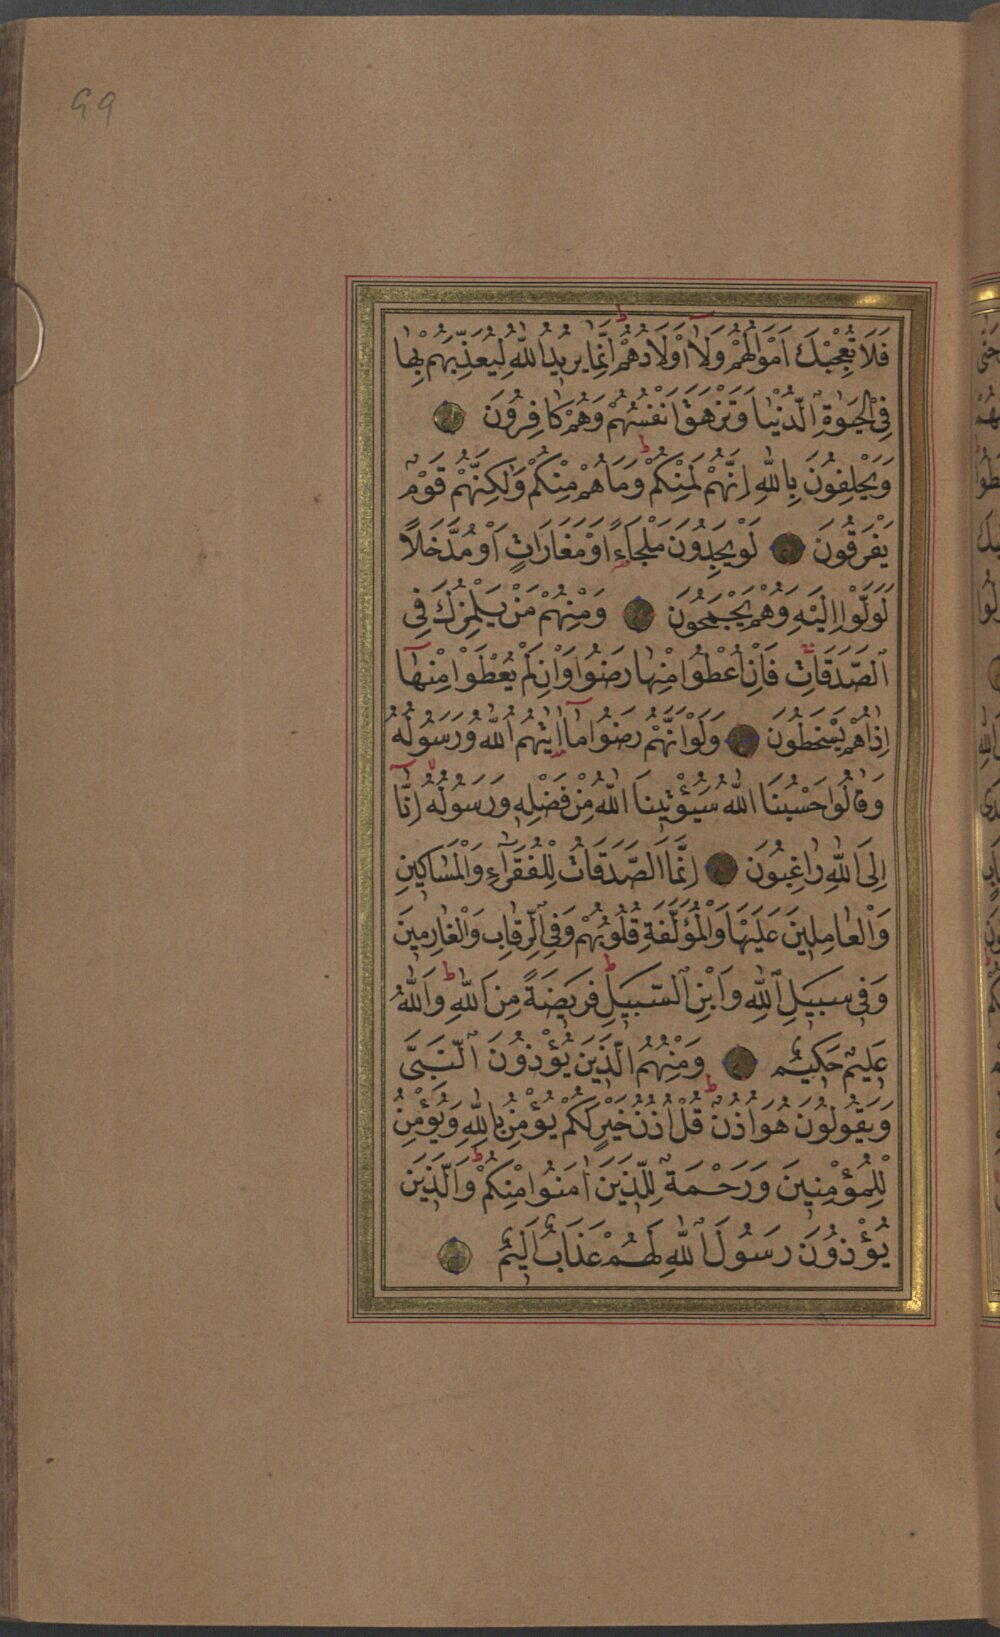 99
فَلَا تُعْجِبْكَ اَمْوَالُهُمْ وَلَٓا اَوْلَادُهُمْ ط اِنَّمَا يُرِيدُ اللّٰهُ لِيُعَذِّبَهُمْ بِهَا
فِى الْحَيٰوةِ الدُّنْيَا وَتَزْهَقَ اَنْفُسُهُمْ وَهُمْ كَافِرُونَ
وَيَحْلِفُونَ بِاللّٰهِ اِنَّهُمْ لَمِنْكُمْ ط وَمَا هُمْ مِنْكُمْ وَلٰكِنَّهُمْ قَوْمٌ
يَفْرَقُونَ لَوْ يَجِدُونَ مَلْجَاءً اَوْ مَغَارَاتٍ اَوْ مُدَّخَلًا
لَوَلَّوْا اِلَيْهِ وَهُمْ يَجْمَحُونَ وَمِنْهُمْ مَنْ يَلْمِزُكَ فِى
الصَّدَقَاتِ فَاِنْ اُعْطُوا مِنْهَا رَضُوا وَاِنْ لَمْ يُعْطَوْا مِنْهَٓا
اِذَا هُمْ يَسْخَطُونَ وَلَوْ اَنَّهُمْ رَضُوا مَٓا اٰتٰيهُمُ اللّٰهُ وَرَسُولُهُ
وَقَالُوا حَسْبُنَا اللّٰهُ سَيُؤْتِينَا اللّٰهُ مِنْ فَضْلِهِ وَرَسُولُهُٓ اِنَّٓا
اِلَى اللّٰهِ رَاغِبُونَ اِنَّمَا الصَّدَقَاتُ لِلْفُقَرَٓاءِ وَالْمَسَاكِينِ
وَالْعَامِلِينَ عَلَيْهَا وَالْمُؤَلَّفَةِ قُلُوبُهُمْ وَفِى الرِّقَابِ وَالْغَارِمِينَ
وَفِى سَبِيلِ اللّٰهِ وَابْنِ السَّبِيلِ ط فَرِيضَةً مِنَ اللّٰهِ ط وَاللّٰهُ
عَلِيمٌ حَكِيمٌ وَمِنْهُمُ الَّذِينَ يُؤْذُونَ النَّبِىَّ
وَيَقُولُونَ هُوَ اُذُنٌ ط قُلْ اُذُنُ خَيْرٍ لَكُمْ يُؤْمِنُ بِاللّٰهِ وَيُؤْمِنُ
لِلْمُؤْمِنِينَ وَرَحْمَةٌ لِلَّذِينَ اٰمَنُوا مِنْكُمْ ط وَالَّذِينَ
يُؤْذُونَ رَسُولَ اللّٰهِ لَهُمْ عَذَابٌ اَلِيمٌ